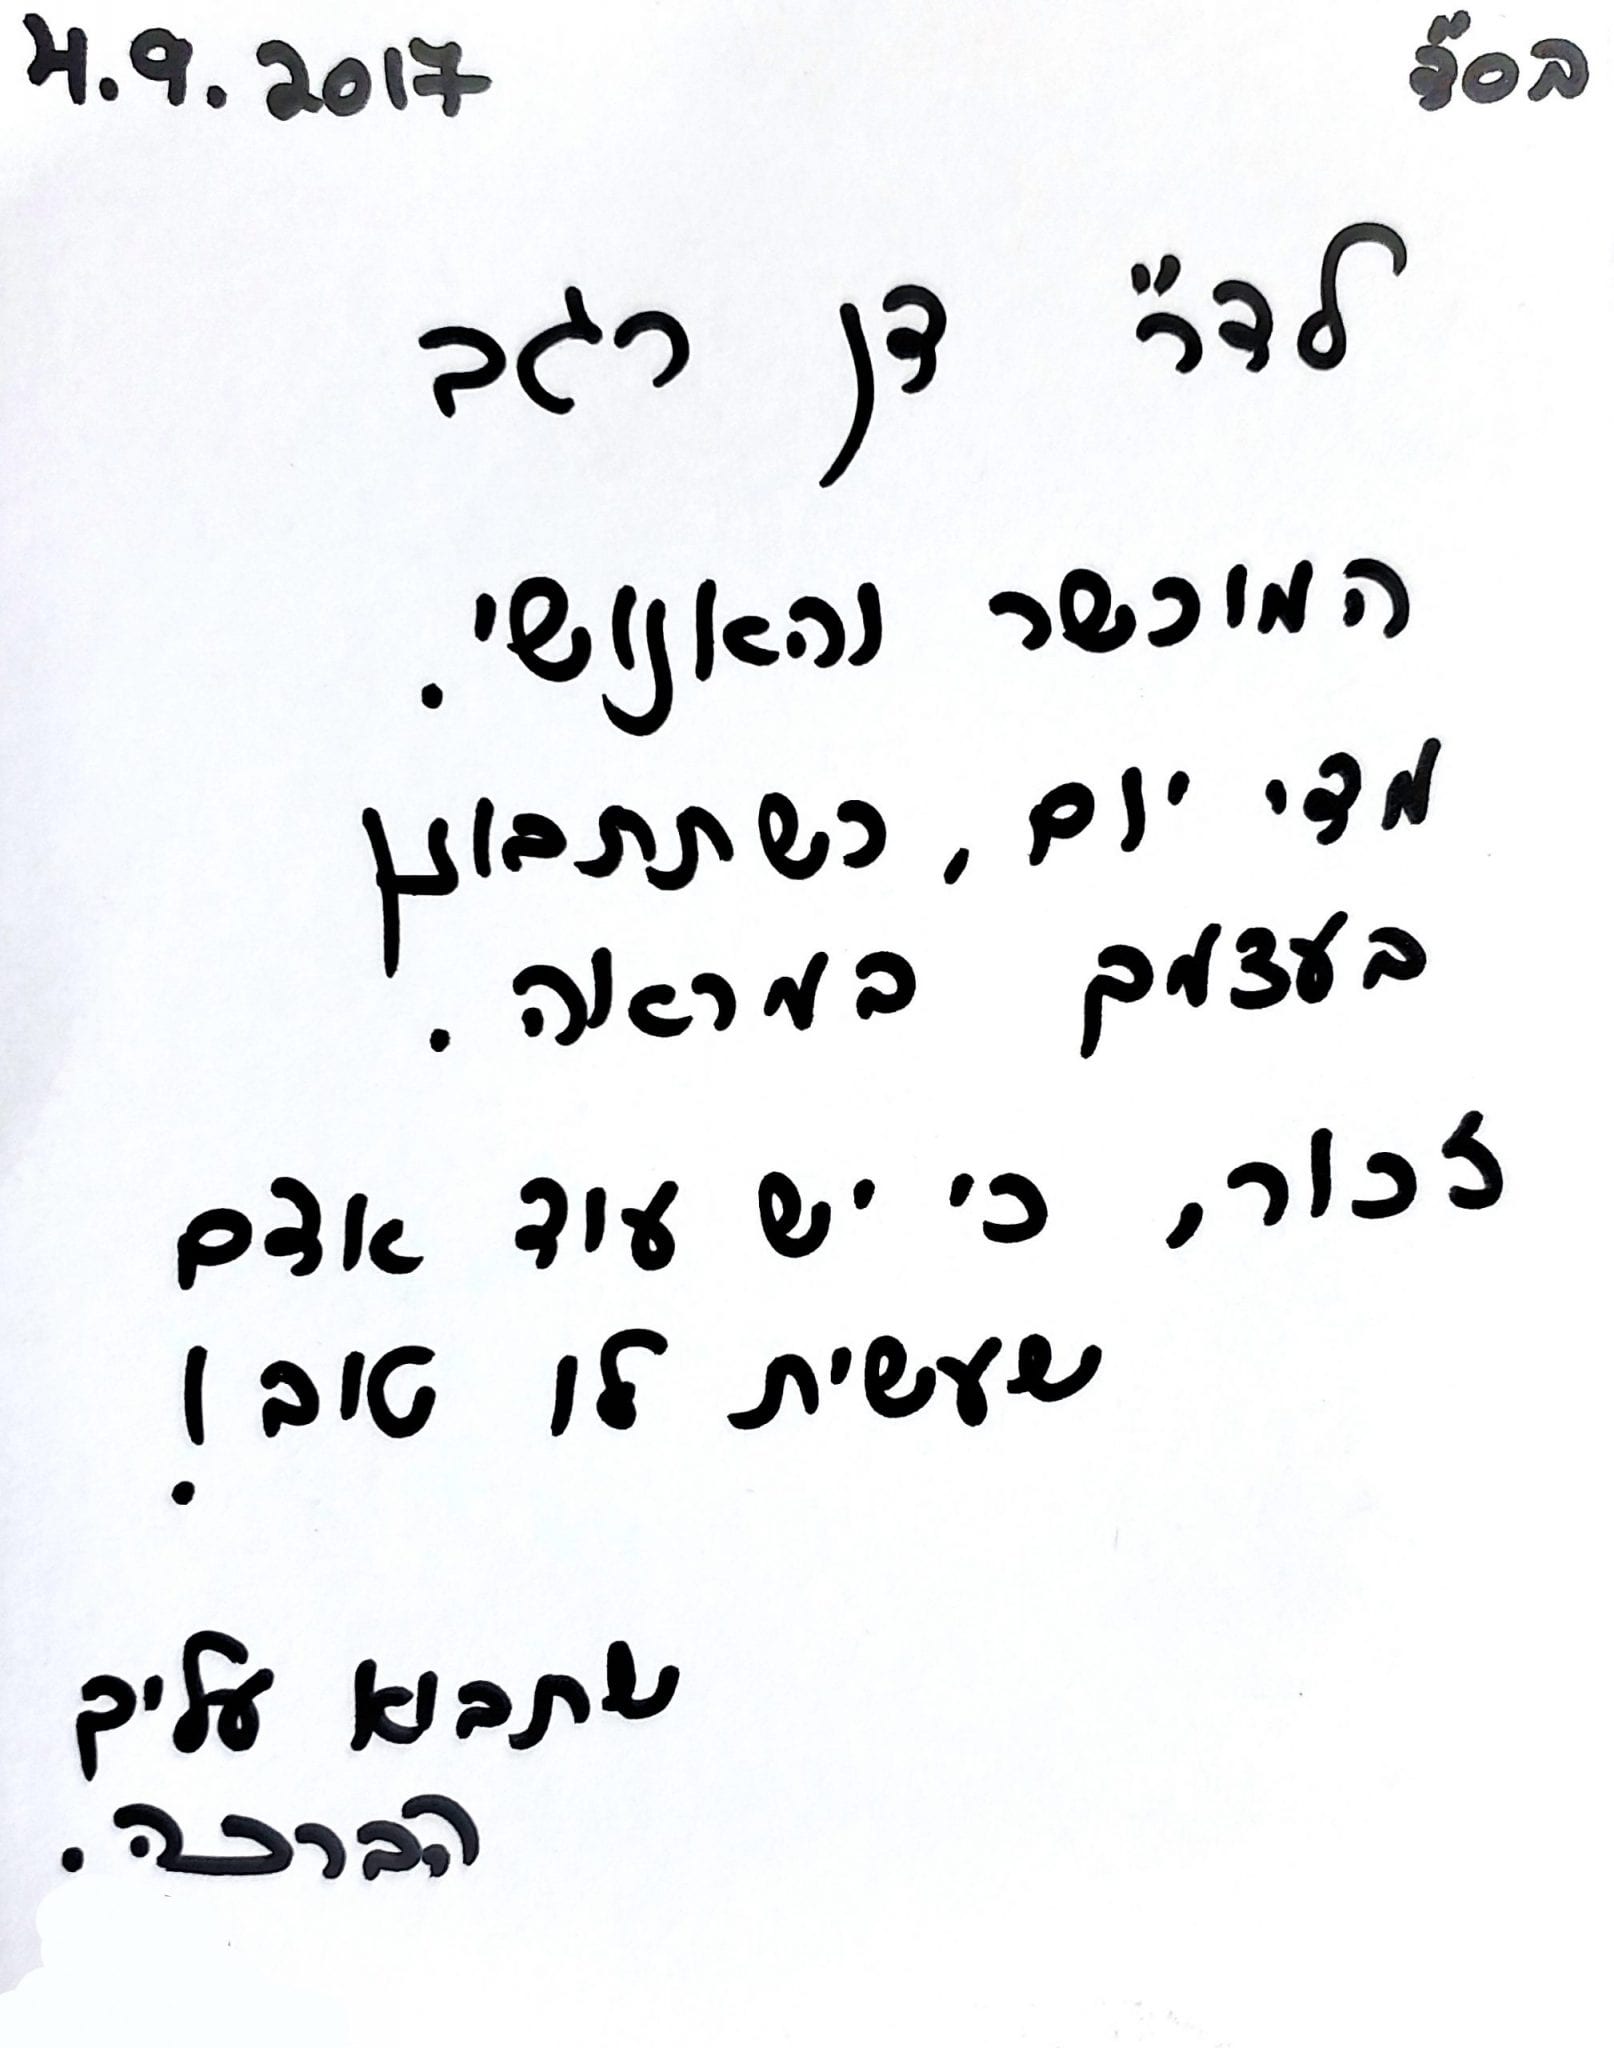 בס"ד 4.9.2017
לדר" דן רגב
המוכשר והאנושי.
מדי יום, כשתתבונן
בעצמך במראה.
זכור, כי יש עוד אדם
שעשית לו טוב!
שתבוא עליך
הברכה.